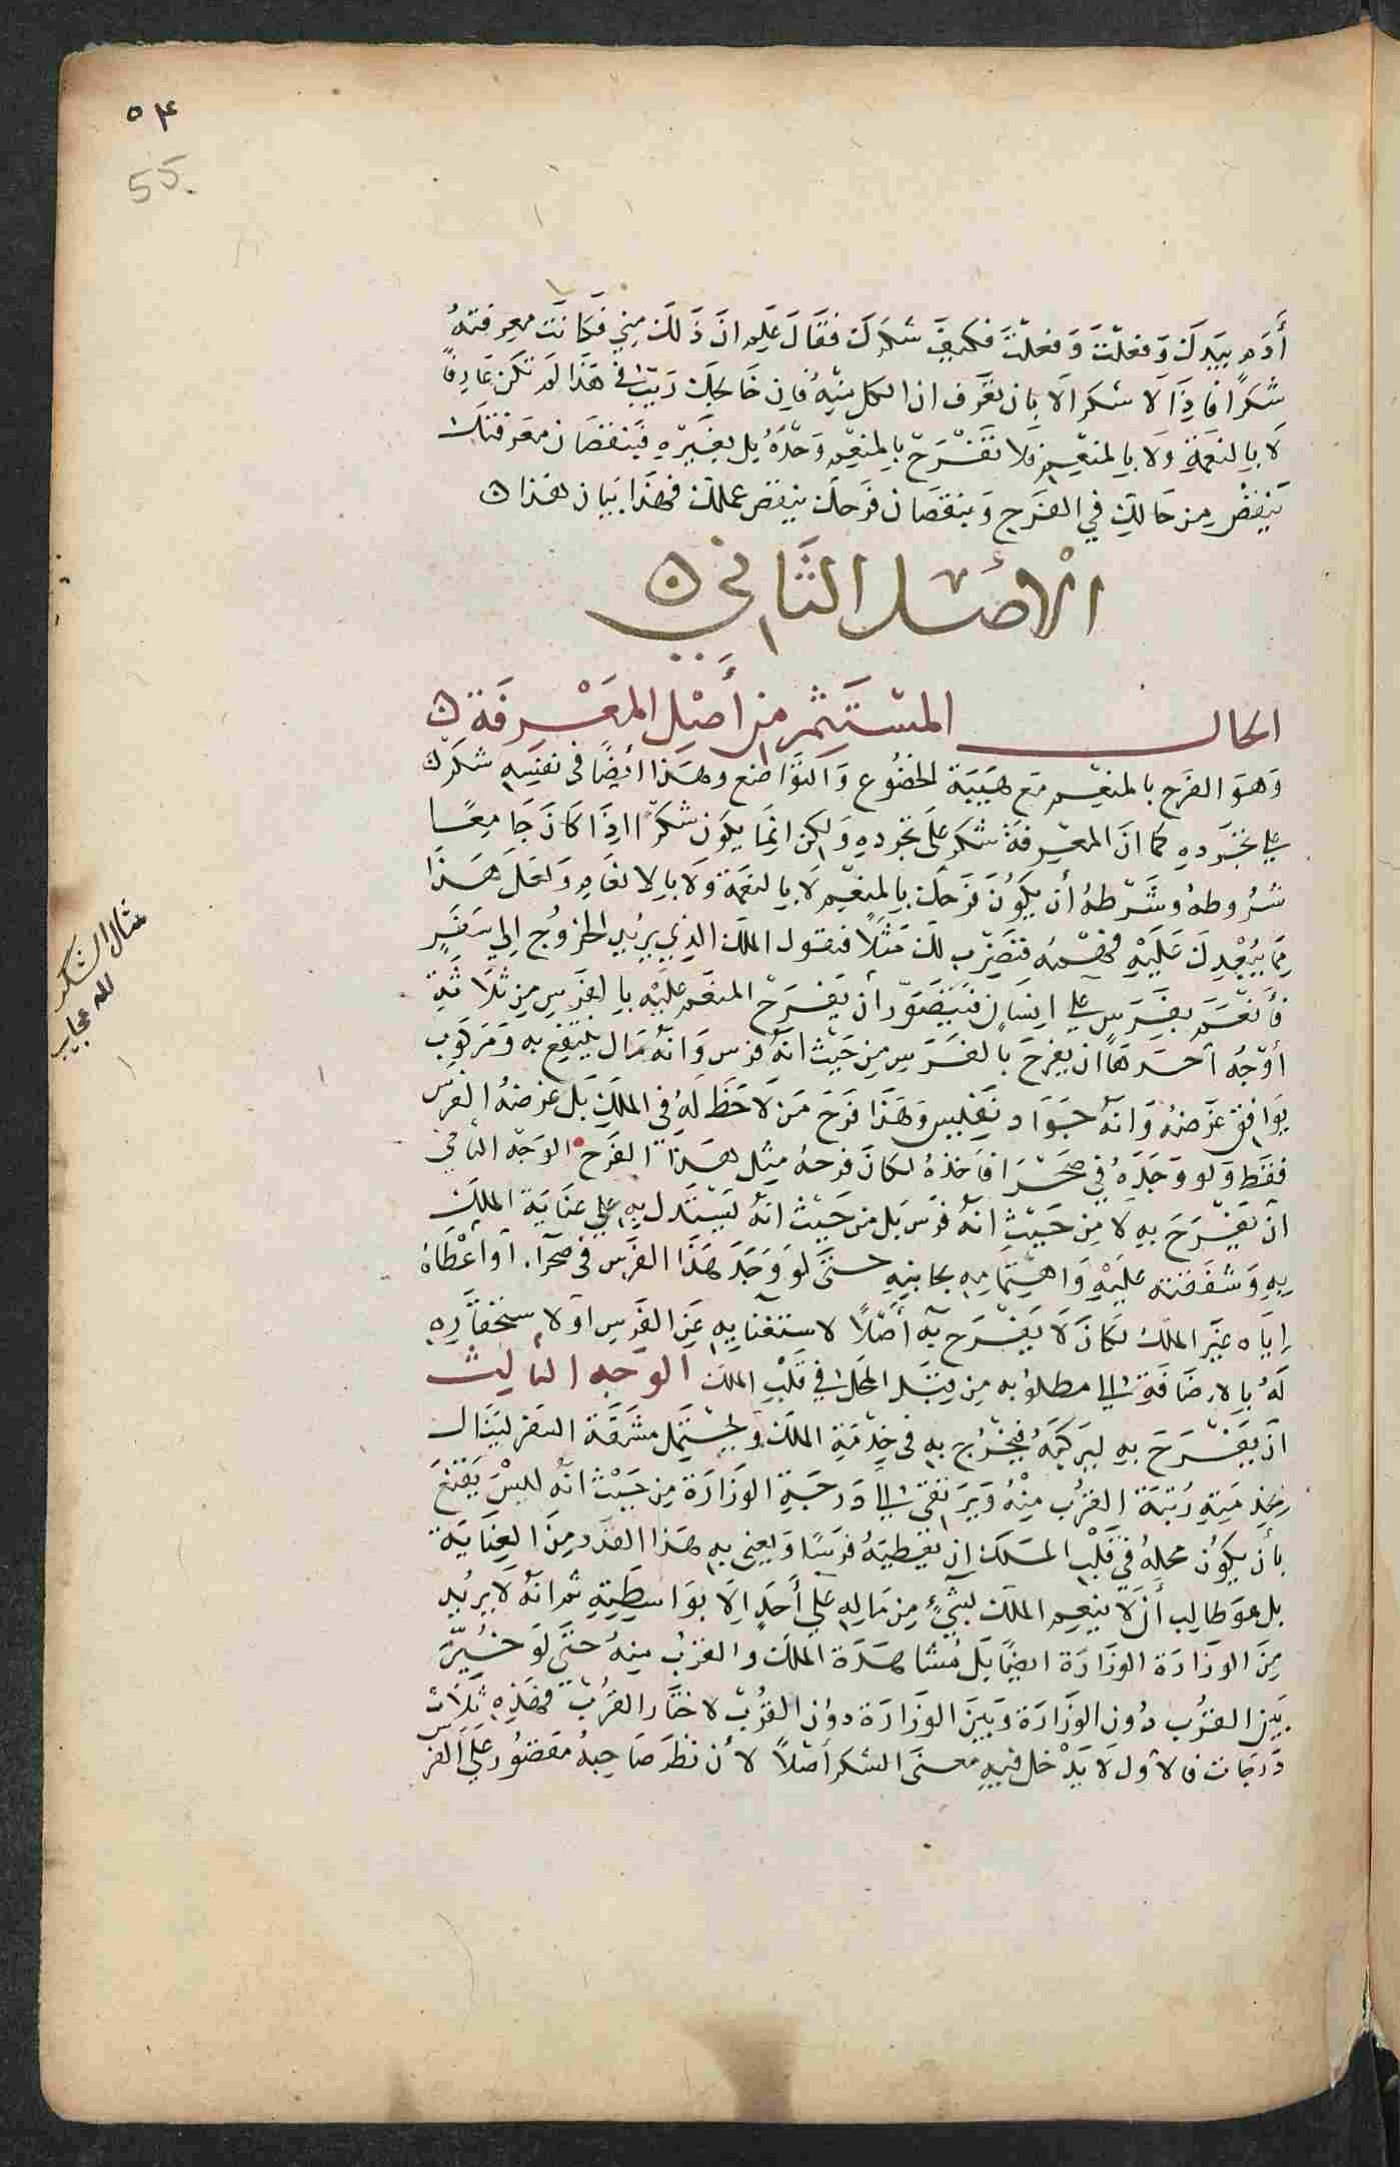 ٥٤
55.
أَدَم بيَدِكَ وَفعلتَ وَفعلتَ فكيفَ شكرَكَ فقَالَ عَلِمَ انَ ذَلكَ مِني فَكَانَت معِرفتهُ
شكرًا فاذَا لَا شكر الا بان تعَرف ان الكل مِنهُ فاِن خَالجكَ رَيبٌ فى هَذا لم تكن عَارِفًا
لَا بالنعَمَة وَلَا بِالمنعِم فلا تفَرَح بِالمنعِم وَحْدَهُ بل بِغيَرِهِ فبنقصَان معَرفتكَ
يَنقصُ مِن حَالكَ في الفرَح وَبنقصَان فرَحكَ ينقص عملكَ فهَذا بَيان هَذا ۞
الأصل الثاني ۞
الحال المسْتَثمر مِن أَصْلِ المعَرفَة ۞
وَهوَ الفرَح بالمنعِم مَع هيَبَة الخضُوع وَالتوَاضع وهَذا أيضًا في نفسِه شكرٌ
علي تجرّدِهِ كما انَ المعَرفَة شكر عَلَى تجردهِ وَلكن انمَا يكوُن شكرًا اذَا كانَ جَامِعًا
شرُوطهُ وشَرْطهُ أن يكوُنَ فرَحكَ بِالمنعِم لَا بِالنعَمة وَلا بِالانعَام وَلعَلَ هَذَا
مِمَا يبْعدكَ عَلَيْهِ فهْمهُ فنضرِب لكَ مَثَلًا فنقول الملكَ الذِي يريُد الخرُوج اِلي سَفَرٍ
فأَنعَم بفَرَسٍ علي انسَان فيتصَوّر أن يفرَحَ المنعَم عَليْهِ بِالفرَسِ مِن ثلَاثَةِ
أوْجهُ أحَدهَا ان يفرحَ بالفرَسِ مِن حَيثُ انهُ فرَس وَانهُ مَال ينتفِع بِه وَمَركوُب
يوَافق غَرَضهُ وَانهُ جوَاد نفِيس وَهَذَا فرَح مَن لَا حَظ لهُ في الملكِ بَل غرضهُ الفرَسَ
فقَط وَلو وَجَدَهُ في صَحْرَا فأخذهُ لكانَ فرحهُ مِثل هَذا الفرَح الوَجه الثاني
ان يفرَحَ بهِ لا مِن حَيثِ انهُ فرَس بَل من حَيثُ انهُ يسْتدل بِهِ علي عنَايَة الملكِ
بِهِ وَشفَقتهِ عَليْهِ وَاهتمَامِهِ بجانبِهِ حتىَ لوَ وَجَدَ هَذَا الفرَس في صَحْرآء أو أعْطَاهُ
اِياهُ غيرُ الملكُ لكَانَ لَا يفرَح بهِ أَصْلًا لاستغنايه عَنِ الفرَسِ أو لاستحقارِهِ
لهُ بِالاضَافَةِ الي مطلوُبه مِن نيَل المحَل في قلبِ الملكَ الوَجه الثالِث
ان يفرَحَ بِهِ ليرَكبَهُ فيخرُج بهِ في خِدْمَةِ الملكَ وَيحتمِل مشَقَّة السَفر ليَنال
بخِدمَتِه رُتبَة القرُب مِنْهُ وَيَرتقي الي دَرجَة الوَزارَة مِن حَيْث انهُ لليسْ يَقنع
بان يكوُن محلهُ في قَلبِ الملَك ان يعُطيهُ فرَسًا وَيعني بِهِ هذا القدَر مِن العِنَايَة
بل هوَ طالِب أن لَا ينعِم الملكَ بشيْءٍ مِن مَالهِ علي أَحَدٍ اِلَا بوَاسِطِتِهِ ثم انهُ لَا يريُد
مِنَ الوزَارَة الوَزارَة ايضًا بَل مُشَاهَدَة الملكَ والقرُب مِنهُ حَتي لوَ خُيّرَ
بَينَ القرُب دُون الوَزَارَة وَبينَ الوَزارَة دوُن القرُب لاختَار القرُب فهَذِهِ ثلَاث
دَرجَات فالاول لَا يَدْخل فيهِ معنىَ الشكر أصْلًا لأن نظرَ صَاحِبهُ مقصُور عَلَى الفرَس
مثال الشكر
لله عجايب